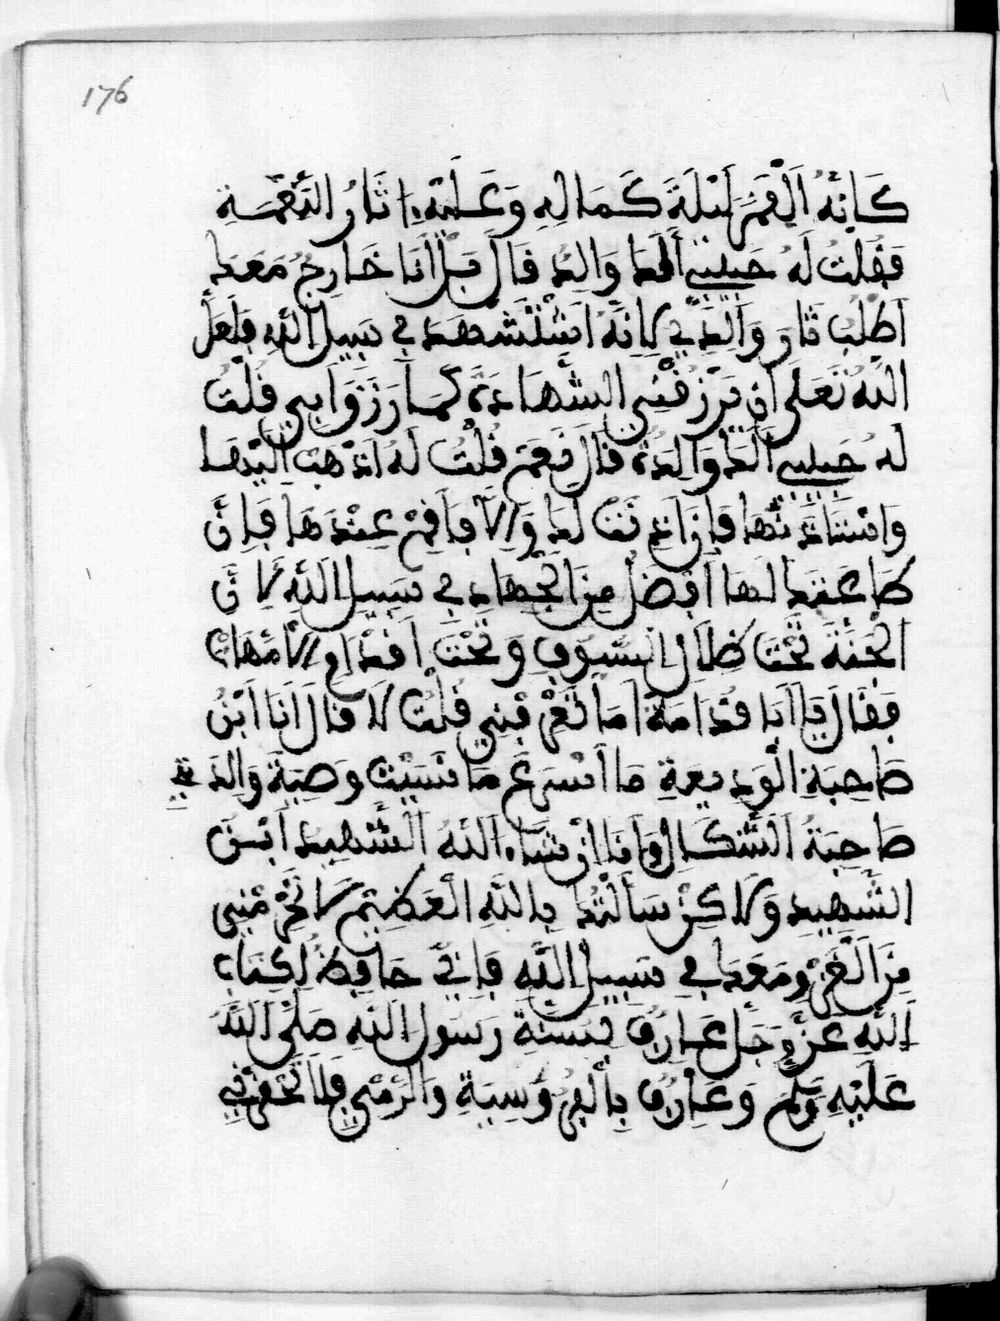 176
كَاَنَّهُ اَلْقَمَرُ لَيْلَةَ كَمَالِهِ وَعَلَيْهِ ءاثَارُ النِّعْمَةِ
فَقُلْتُ لَهُ حَبِيبِي أَلَكَ وَالِدٌ قَالَ بَلْ أَنَا خَارِجٌ مَعَكَ
اَطْلُبُ ثَارَ وَالِدِي لِانَّهُ اسْتُشْهِدَ فِي سَبِيلِ اللَّهِ فَلَعَلَّ
اللَّهُ تَعَلَى اَنْ يَرْزُقَنِي الشَّهَادَةَ كَمَا رَزَقَ اَبِي قُلْتُ
لَهُ حَبِيبِي اَلَكَ وَالِدَةٌ قَالَ نَعَمْ قُلْتُ لَهُ اذْهَبْ اِلَيْهَا
وَاسْتَاذِنْهَا فَإِنْ اَذِنَتْ لَكَ وَإِلَّا فَأَقِمْ عِنْدَهَا فَإِنَّ
طَاعَتَكَ لَهَا اَفْضَلُ مِنَ الْجِهَادِ فِي سَبِيلِ اللَّهِ لِأَنَّ
الْجَنَّةَ تَحْتَ ظِلَالِ السُّيُوفِ وَتَحْتَ اَقْدَامِ الْأُمَّهَاتِ
فَقَالَ يَا اَبَا قُدَامَةَ اَمَا تَعْرِفُنِي قُلْتُ لَا قَالَ اَنَا اَبْنُ
صَاحِبَةِ الْوَدِيعَةِ مَا اَسْرَعَ مَا نَسَيْتَ وَصِيَةَ وَالِدَتِي
صَاحِبَةُ الشِّكَالِ وَأَنَا اِنْ شَاءَ اَللَّهُ الشَّهِيدُ ابْنُ
الشَّهِيدِ وَلَاكِنْ سَأَلْتُكَ بِاللَّهِ الْعَظِيمِ لَا تَحْرِمْنِي
مِنَ الْغَزْوِ مَعَكَ فِي سَبِيلِ اللَّهِ فَإِنِّي حَافِظٌ لِكِتَابِ
اللَّهِ عَزَّ وَجَلَّ عَارِفٌ بِسُنَّةِ رَسُولِ اللَّهِ صَلَّى اللَّهُ
عَلَيْهِ وَسَلَّمَ وَعَارِفٌ بِالْفُرُوسِيَةِ وَالرَّمْيِ فَلَا تَحْقِرْنِي